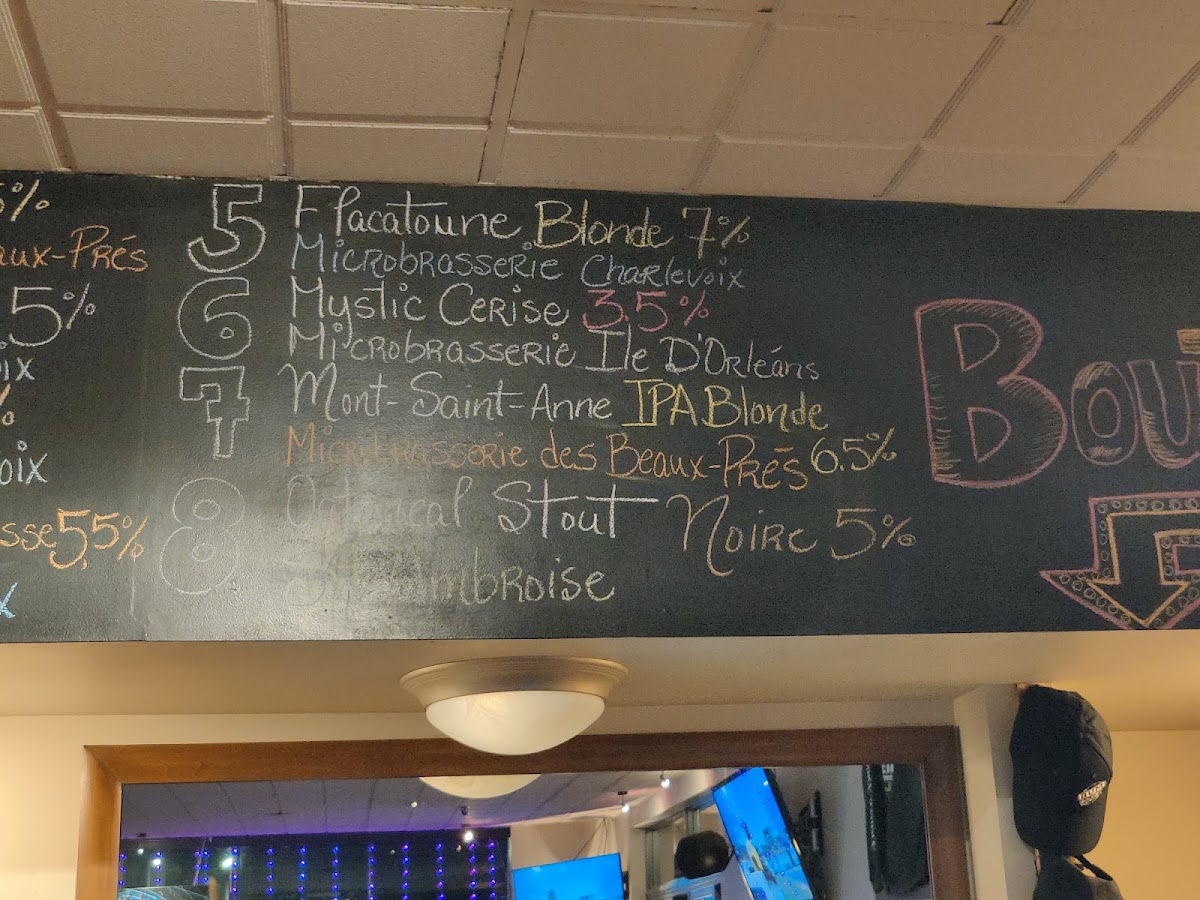 5%
aux-Prés
.5%
ix
%
oix
sse 5,5%
x
5 Flacatoune Blonde 7%
Microbrasserie Charlevoix
6 Mystic Cerise 3.5%
Microbrasserie Ile D'Orléans
7 Mont-Saint-Anne IPA Blonde
Microbrasserie des Beaux-Prés 6.5%
8 Oatmeal Stout Noire 5%
Ambroise
Bou